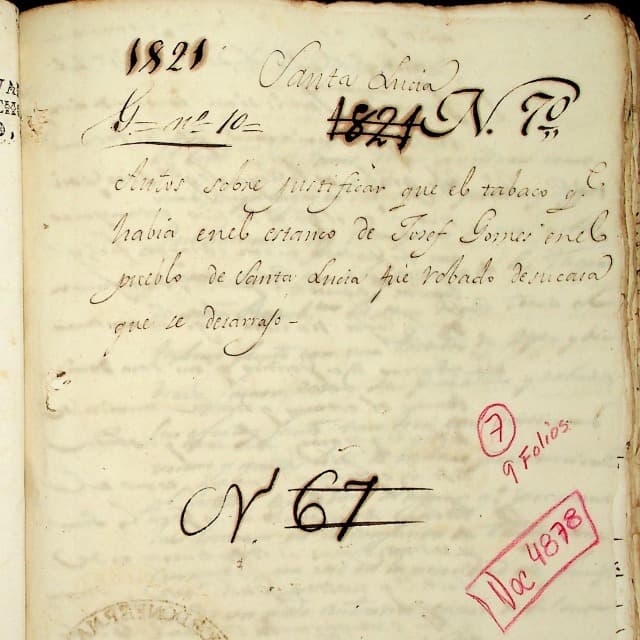 1821
Santa Lucia
G.= nº 10=
1824 N. 7º
Autos sobre justificar que el tabaco q.e
habia enel estanco de Josef Gomes enel
pueblo de Santa Lucia fue robado desucasa
que se desarrajo-
7
9 Folios
Nº 67
Doc 4878